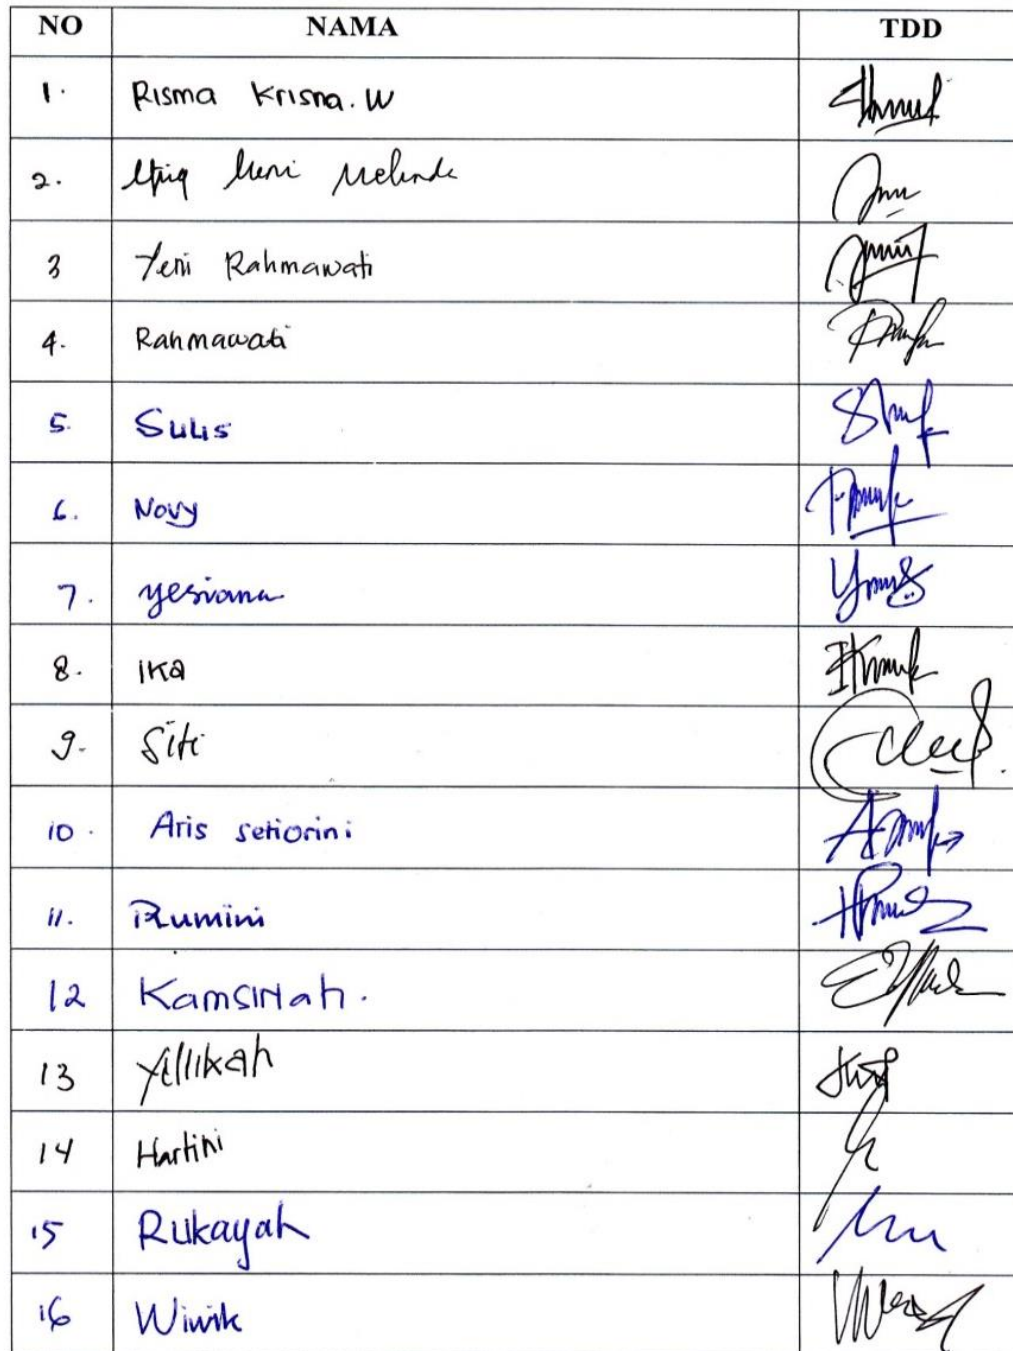 NO NAMA TDD
1. Risma Krisna. W
2. Meni Melinda
3 Yeni Rahmawati
4. Rahmawati
5. Sulis
6. Novy
7. yesviana
8. IKa
9. Siti
10. Aris setiorini
11. Rumini
12 Kamsiriah.
13
14 Hartini
15 Rukayah
16 Wiwik